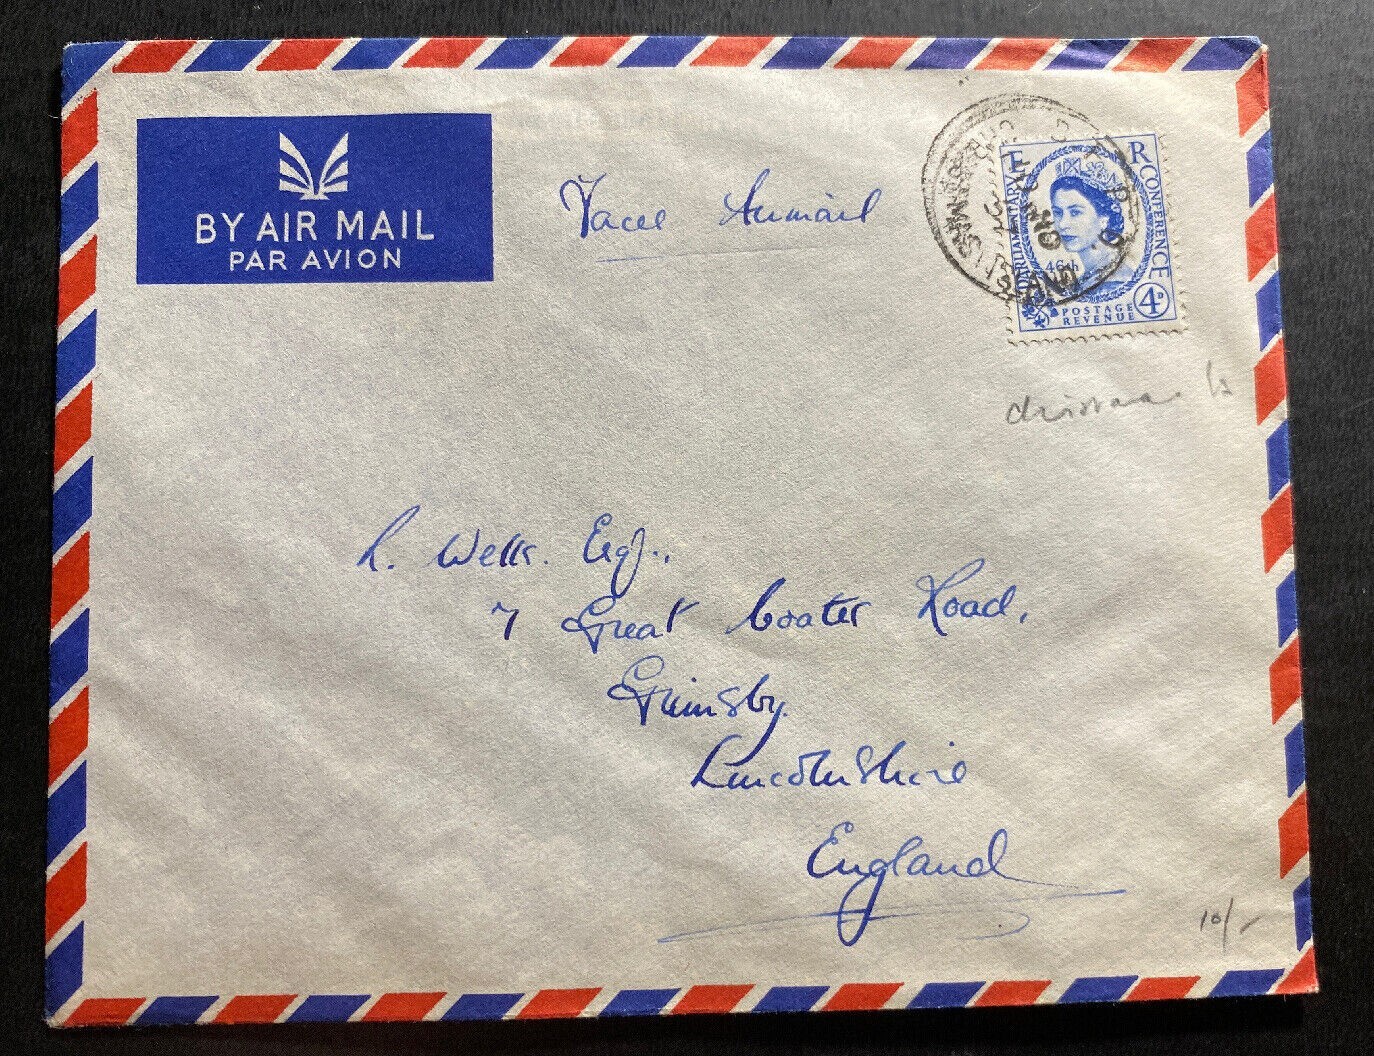 BY AIR MAIL
PAR AVION
Airmail
E R
PARLIAMENTARY
CONFERENCE
46th
POSTAGE
REVENUE
4D
CHRISTMAS ISLAND
L. Wells. Esq.,
7 Great Coates Road,
Grimsby.
Lincolnshire
England
10/-